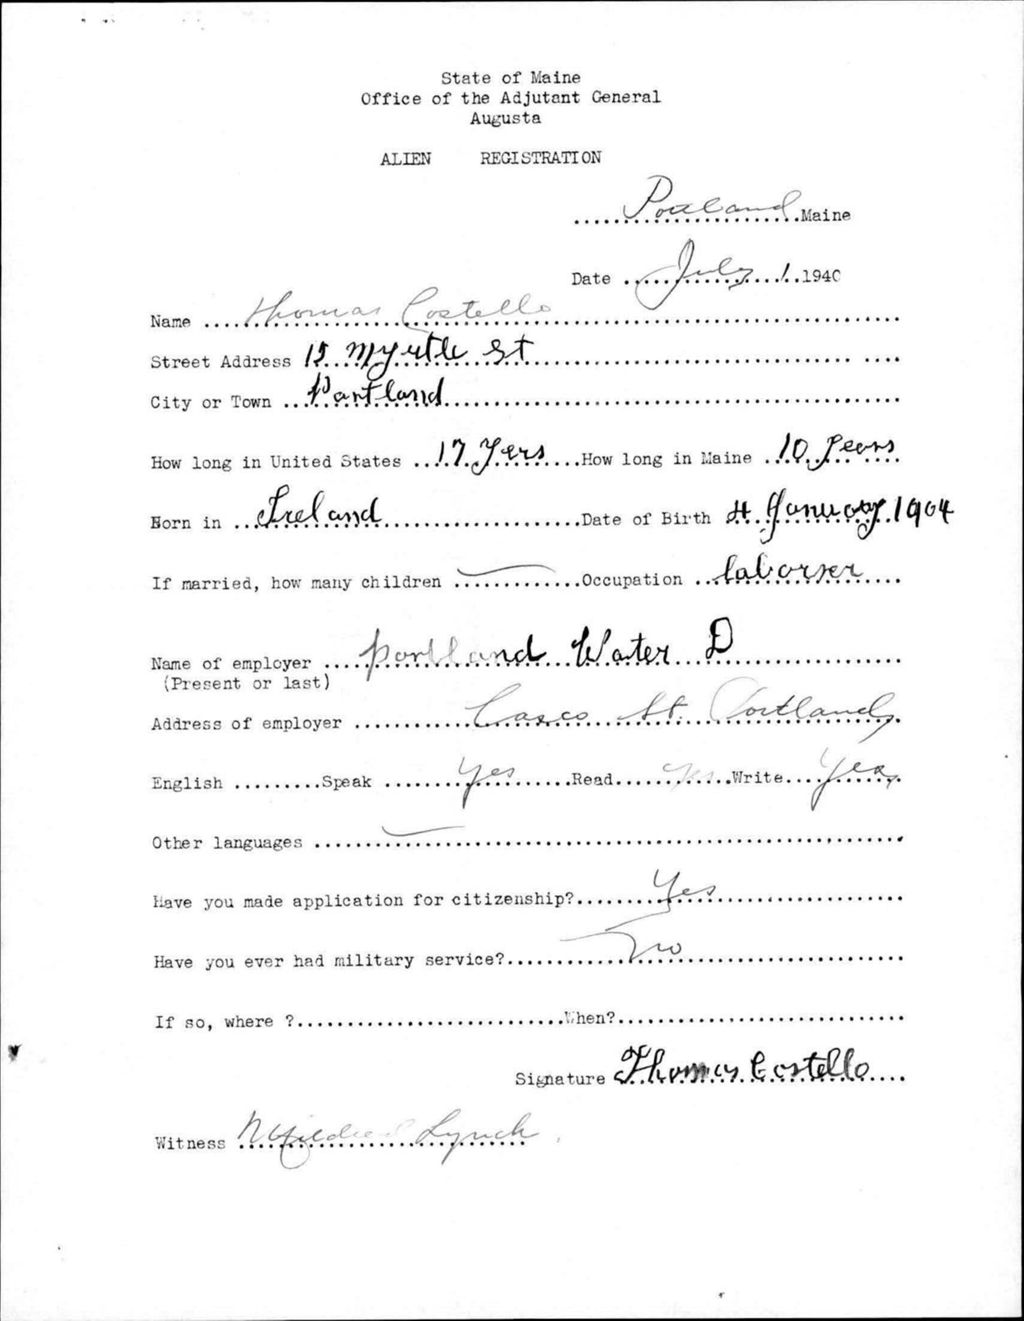 State of Maine
Office of the Adjutant General
Augusta
ALIEN REGISTRATION
Portland Maine
Date July 1 1940
Name Thomas Costello
Street Address 15 Myrtle St
City or Town Portland
How long in United States 17 Yers How long in Maine 10 Years
Born in Ireland Date of Birth 4 January 1904
If married, how many children — Occupation laborer
Name of employer Portland Water D
(Present or last)
Address of employer Casco St. Portland
English Speak Yes Read Yes Write Yes
Other languages —
Have you made application for citizenship? Yes
Have you ever had military service? No
If so, where ? When?
Signature Thomas Costello
Witness Mildred Lynch